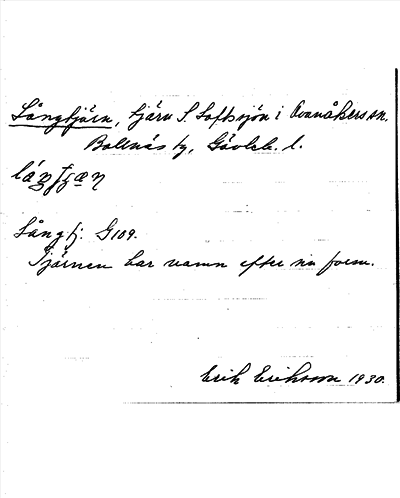 Långtjärn, tjärn S. Loftsjön i Ovanåkers sn.
Bollnäs tg, Gävleb. l.
Långtj: G109.
Tjärnen har namn efter sin form.
Erik Eriksson 1930.